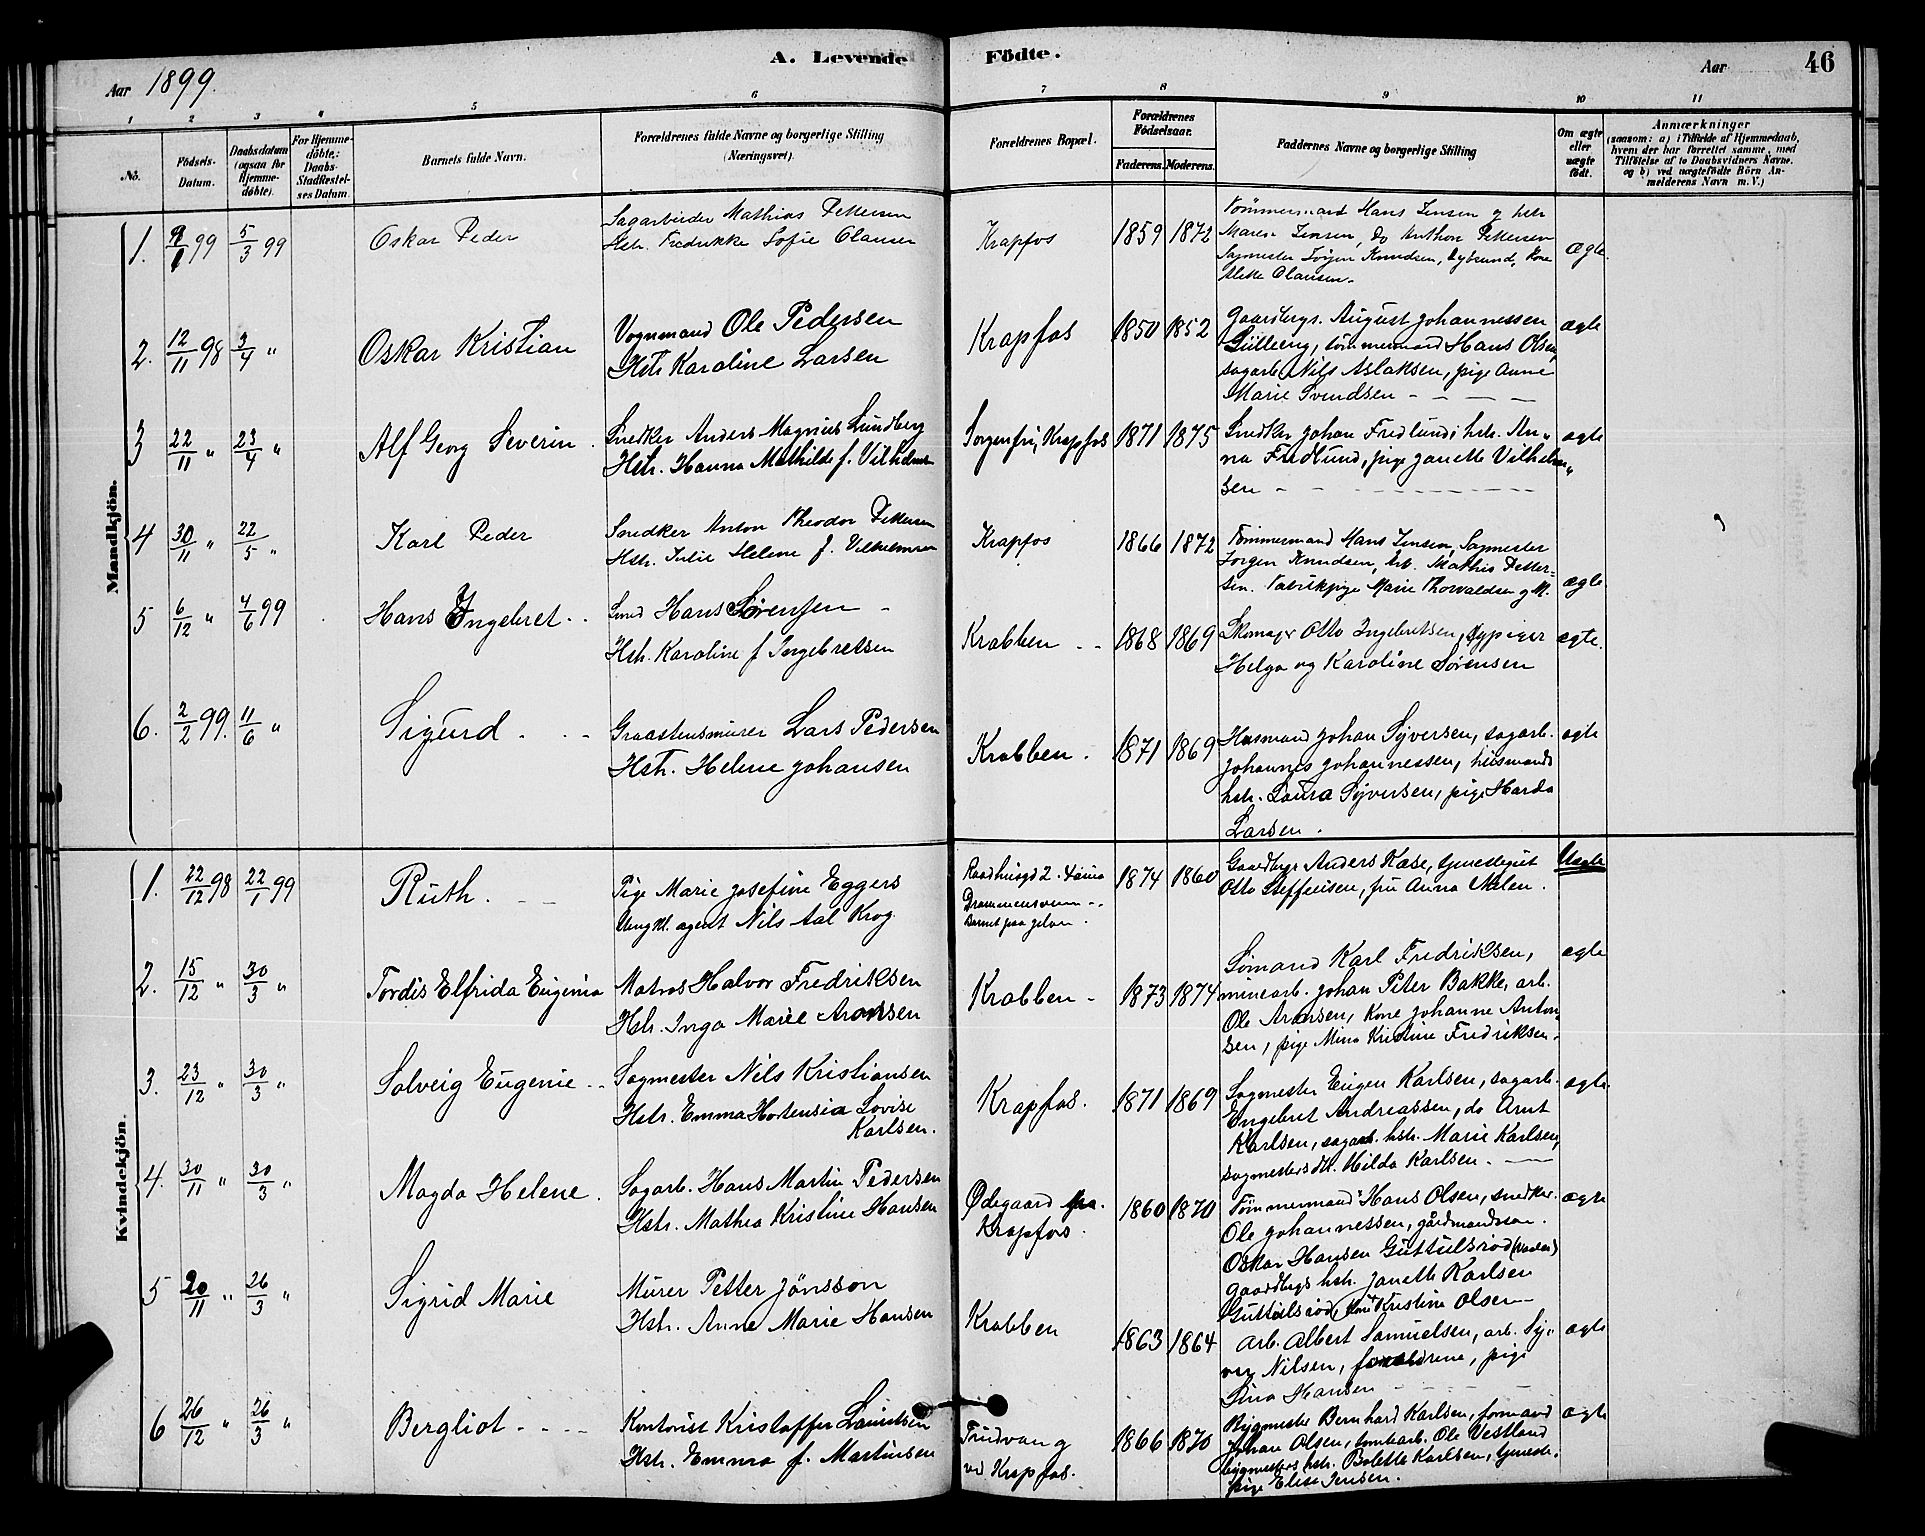 A. Levende Födte.
Aar 1899.
Aar 46
1 2 3 4 5 6 7 8 9 10 11
No.
Födsels-Datum.
Daabsdatum (ogsaa for Hjemme-döbte).
For Hjemme-döbte; Daabs-Stadfæstel-ses Datum.
Barnets fulde Navn.
Forældrenes fulde Navne og borgerlige Stilling (Næringsvei).
Forældrenes Bopæl.
Forældrenes Födselsaar.
Faderens. Moderens.
Faddernes Navne og borgerlige Stilling
Om ægte eller uægte födt.
Anmærkninger
(saasom: a) i Tilfælde af Hjemmedaab, hvem der har forrettet samme, med Tilföielse af to Daabsvidners Navne. og b) ved uægtefödte Börn An-melderens Navn m. V.)
Mandkjön.
1. 9/1 99 5/3 99 Oskar Peder
Sagarbeider Mathias Pettersen
Hstr. Fredrikke Sofie Clausen
Krapfos 1859 1872
Tömmermand Hans Jensen og hstr
Maren Jensen, do Anthon Pettersen
Sagmester Jörgen Knudsen, Kone
Clausen.
Ægte.
2. 12/11 98 3/4 " Oskar Kristian
Vognmand Ole Pedersen
Hstr Karoline Larsen
Krapfos 1850 1852
Gaardbrgr. August Johannessen
Lilleeng, tømmermand Hans Olsen,
sagarb. Nils Aslaksen, pige Anne
Marie Svendsen
ægte
3 22/11 " 23/4 " Alf Georg Severin.
Snedker Anders Magnus Lundberg
Hstr. Hanna Mathilde f. Vilhelmsen
Sorgenfri, Krapfos 1871 1875
Snedker Johan Fredlund, hstr. An-
na Fredlund, pige Janette Vilhelm-
sen
ægte
4 30/11 " 22/5 " Karl Peder
Snedker Anton Theodor Pettersen
Hstr. Julie Helene f. Vilhelmsen
Krapfos 1866 1872
Tömmermand Hans Jensen, Sagmester
Jörgen Knudsen, Arb. Mathis Petter-
sen. Fabrikpige Marie Thorvaldsen og M.
ægte
5 6/12 " 4/6 99 Hans Ingebret
Smed Hans Sörensen
Hstr. Karoline f. Ingebretsen
Krabben 1868 1869
Skomager Otto Ingebretsen, sypiger
Helga og Karoline Sørensen
ægte.
6. 2/2 99. 11/6 " Sigurd
Graastensmurer Lars Pedersen
Hstr. Helene Johansen
Krabben. 1871 1869
Husmand Johan Syversen, sagarb.
Johannes Johannessen, husmands
hstr. Laura Syversen, pige Harda
Larsen.
ægte
Kvindekjön.
1. 22/12 98 22/1 99 Ruth.
Pige Marie Josefine Eggers
Ungkl. agent Nils Aal Krog
Raadhusgd 2.
Drammensveien
Barnet paa
1874 1860
Gaardbrgr Anders Kase, tjenestegut
Otto Steffensen, fru Anna Melen.
Uægte
2. 15/12 " 30/3 " Tordis Elfrida Eugenia
Matros Halvor Fredriksen
Hstr. Inga Marie Aronsen
Krabben 1873 1874
Sømand Karl Fredriksen,
minearb. Johan Peter Bakke, arb.
Ole Aronsen, Kone Johanne Anton
sen, pige Mina Kristine Fredriksen.
ægte
3. 23/12 " 30/3 " Solveig Eugenie
Sagmester Nils Kristiansen
Hstr. Emma Hortensia Lovise
Karlsen.
Krapfos. 1871 1869
Sagmester Eugen Karlsen, sagarb.
Engebret Andreassen, do Arnt
Karlsen, sagarb. hstr. Marie Karlsen,
sagmesters dtr. Hilda Karlsen.
ægte
4. 30/11 " 30/3 " Magda Helene.
Sagarb. Hans Martin Pedersen
Hstr. Mathea Kristine Hansen
Ødegaard
Krapfos. 1860 1870
Tömmermand Hans Olsen, snedker
Ole Johannessen, gårdmandssøn
Oskar Hansen Guttulsrød (Vaaler)
Gaardbrgs hstr. Janette Karlsen
Guttulsrød, Kone Kristine Olsen
ægte
5 20/11 " 26/3 " Sigrid Marie
Murer Petter Jönsson
Hstr. Anne Marie Hansen
Krabben 1863 1864
Arb. Albert Samuelsen, arb. Sy-
ver Nilsen, forældrene, pige
Lina Hansen
ægte
6 26/12 " 26/3 " Bergliot
Kontorist Kristoffer Lauritsen
Hstr. Emma f. Martinsen
Fridvang
ved Krapfos. 1866 1870
Bygmester Bernhard Karlsen, formand
Johan Olsen, tomtearb. Ole Vestlund
bygmesters hstr. Bolette Karlsen, tjeneste-
pige Elise Jensen.
ægte